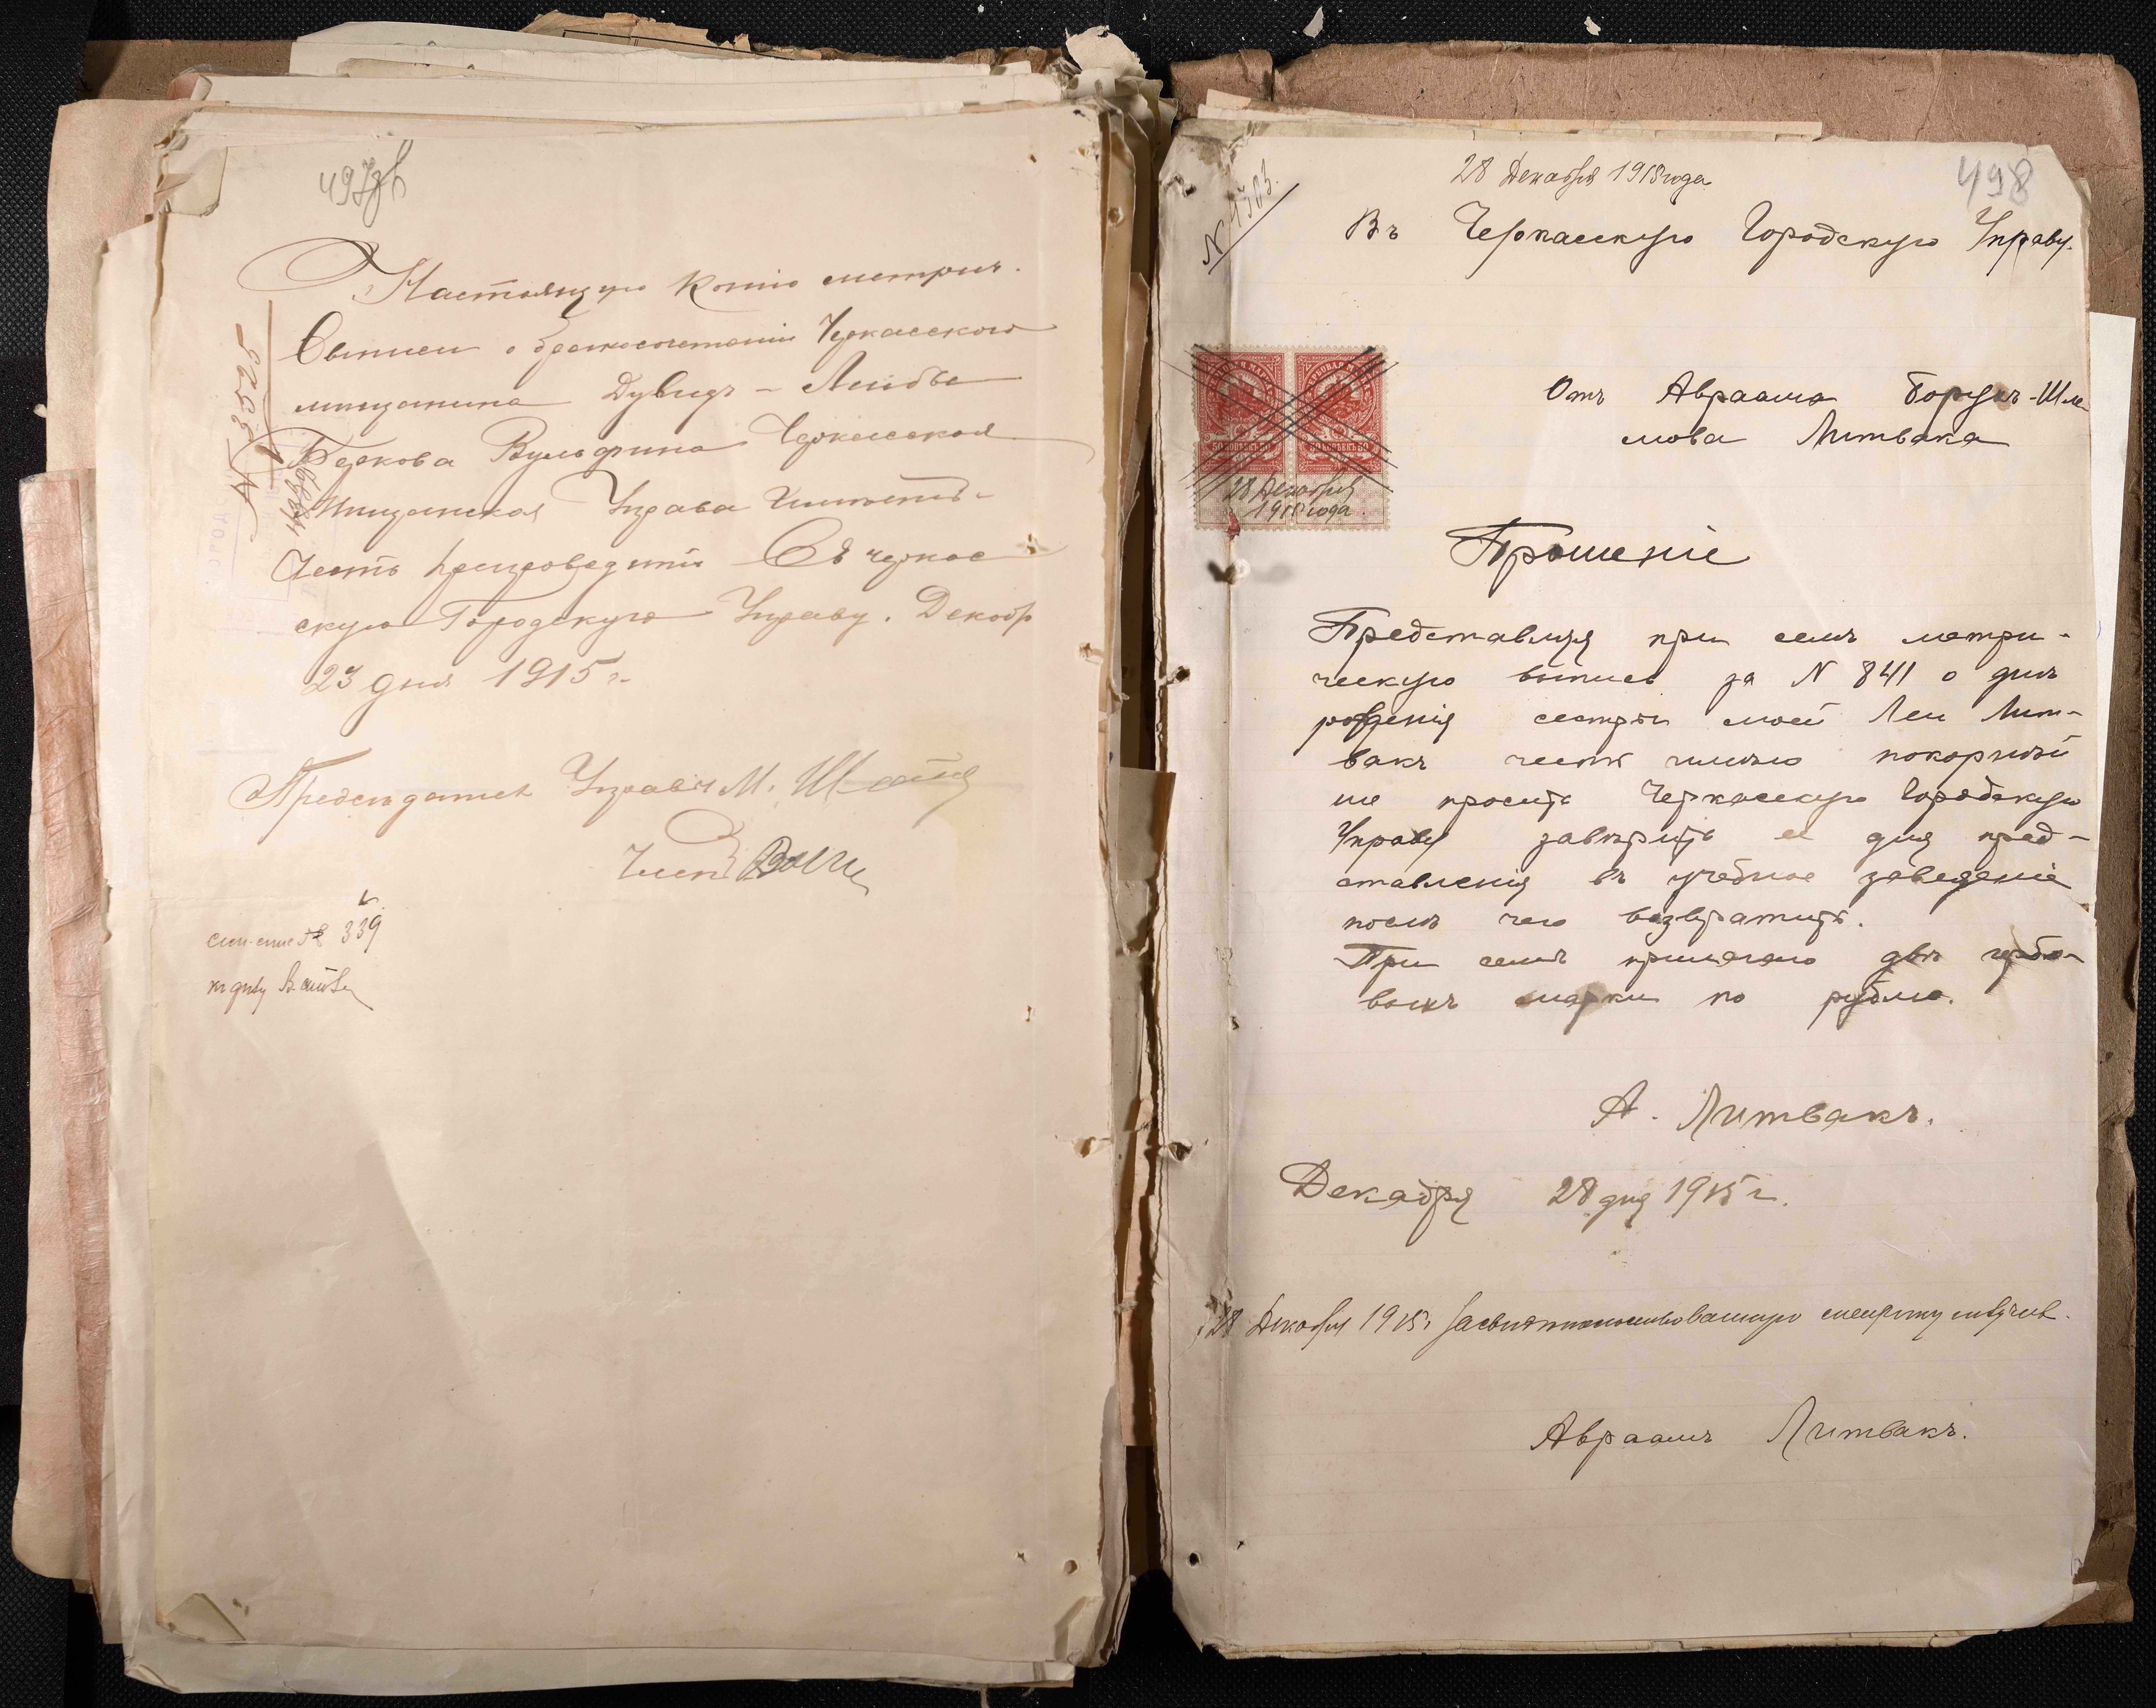 497
Настоящую Копію метрич.
выписи о бракосочетаніи Черкасского
мещанина Дувидъ - Лейбы
Беркова Вульфина Черкасская
Мещанская Управа имѣетъ
честь препроводить Въ Черкас
скую Городскую Управу. Декабр
23 дня 1915 г.
Предсѣдатель Управы М.
Членъ
339
498
28 Декабря 1915 года
Въ Черкасскую Городскую Управу.
Отъ Авраама Борухъ-Шле
мова Литвака
28 Декабря
1915 года
Прошеніе
Представляя при семъ метри-
ческую выпись за N 841 о днѣ
рожденія сестры моей Леи Лит-
вакъ честь имѣю покорнѣй
ше просить Черкасскую Городскую
Управу завѣрить ее для пред-
ставленія въ учебное заведеніе
послѣ чего возвратить.
При семъ прилагаю двѣ гербо-
выхъ марки по рублю.
А. Литвакъ.
Декабря 28 дня 1915 г.
28 Декабря 1915 г. засвидѣтельствованную метрику получилъ.
Авраамъ Литвакъ.